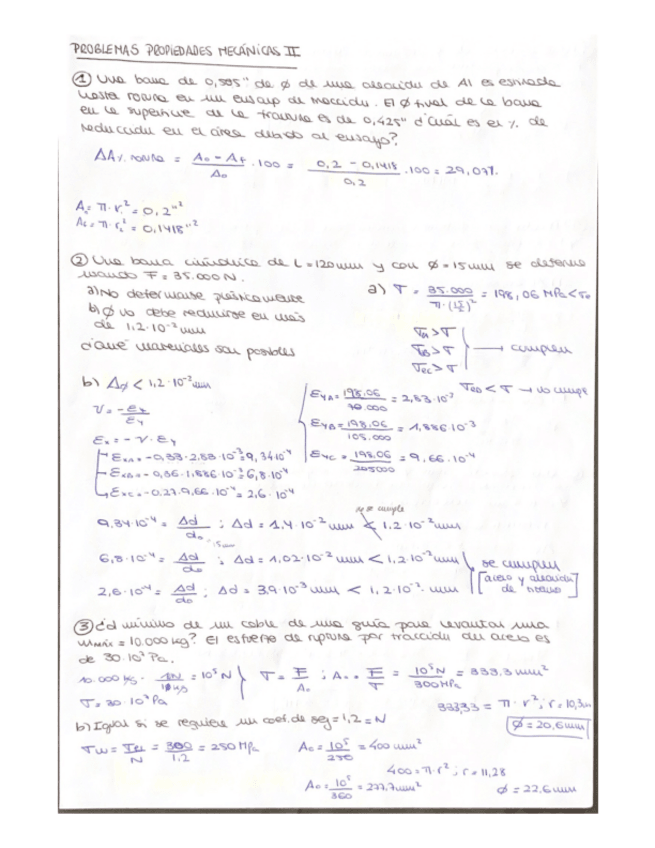 PROBLEMAS PROPIEDADES MECÁNICAS II
① Una barra de 0,505" de ϕ de una aleación de Al es estirada
hasta rotura en un ensayo de tracción. El ϕ final de la barra
en la superficie de la fractura es de 0,425" ¿Cuál es el % de
reducción en el área debido al ensayo?
ΔA% rotura = (A₀ - A_f)/A₀ · 100 = (0,2 - 0,1418)/0,2 · 100 = 29,07%.
A₀ = π · r₀² = 0,2"²
A_f = π · r_f² = 0,1418"²
② Una barra cilíndrica de L = 120mm y con ϕ = 15mm se deforma
usando F = 35.000 N.
a) No deformarse plásticamente
b) ϕ no debe reducirse en más
de 1,2·10⁻² mm
¿Qué materiales son posibles
a) σ = 35.000/(π·(15/2)²) = 198,06 MPa
σ_A > σ
σ_B > σ
σ_C > σ
→ cumplen
σ_D < σ → no cumple
b) Δϕ < 1,2·10⁻² mm
ν = -εx/εy
εx = - ν · εy
εyA = 198,06/70.000 = 2,83·10⁻³
εyB = 198,06/105.000 = 1,886·10⁻³
εyC = 198,06/205000 = 9,66·10⁻⁴
εxA = -0,33·2,83·10⁻³ = 9,34·10⁻⁴
εxB = -0,36·1,886·10⁻³ = 6,8·10⁻⁴
εxC = -0,27·9,66·10⁻⁴ = 2,6·10⁻⁴
no se cumple
9,34·10⁻⁴ = Δd/d₀ ; Δd = 1,4·10⁻² mm < 1,2·10⁻² mm
6,8·10⁻⁴ = Δd/d₀ ; Δd = 1,02·10⁻² mm < 1,2·10⁻² mm
2,6·10⁻⁴ = Δd/d₀ ; Δd = 3,9·10⁻³ mm < 1,2·10⁻² mm
se cumplen
[acero y aleación de titanio]
③ ¿d mínimo de un cable de una grúa para levantar una
m_máx = 10.000 kg? El esfuerzo de rotura por tracción del acero es
de 30·10⁷ Pa.
10.000 kg · = 10⁵ N
σ = 30·10⁷ Pa
σ = F/A₀ ; A₀ = F/σ = 10⁵N/300MPa = 333,3 mm²
333,33 = π · r² ; r = 10,3
ϕ = 20,6mm
b) Igual si se requiere un coef. de seg = 1,2 = N
σw = /N = 300/1.2 = 250 MPa
A₀ = 10⁵/250 = 400 mm²
400 = π·r² ; r = 11,28
A₀ = 10⁵/360 = 277,7mm²
ϕ = 22,6mm